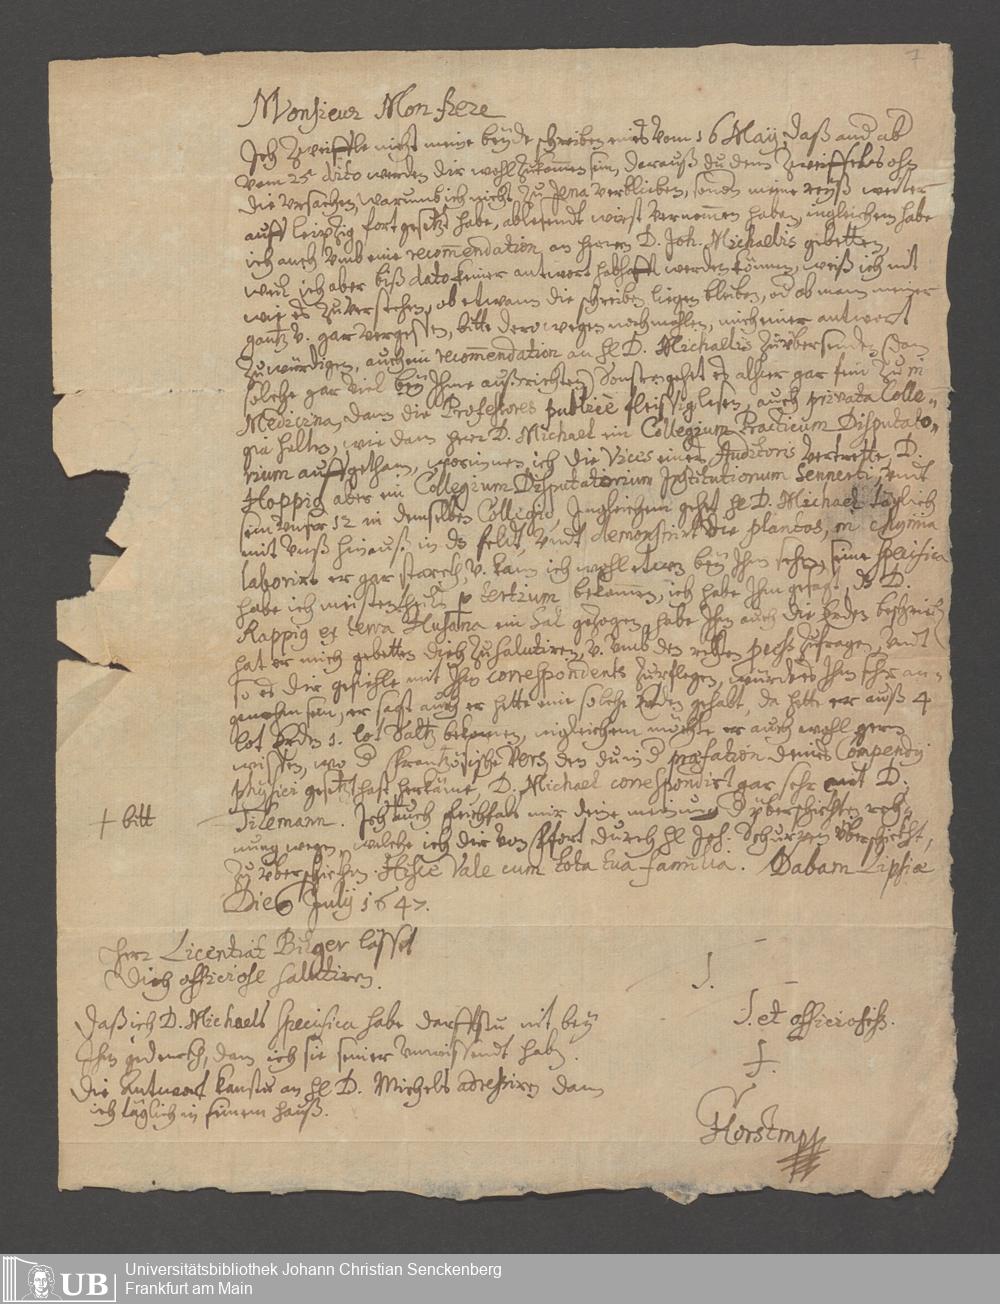 1
Monsieur Mon frere
Ich Zweiffle nicht meine beÿde schreiben eines vom 16 Maÿ, daß and
vom 25 dito werden dir wohl Zukom̄en sein, darauß du den Zweiffels ohn
die Vrsachen, warumb ich nicht Zu Jena verblieben, sonden meine reÿß weiter
auff Leipzig fort gesetzt habe, ablesendt wirst vernom̄en haben, ingleichem habe
ich auch vmb eine recom̄endation an herren D. Joh. Michaelis gebetten,
weil ich aber biß dato keiner antwort habhafft werden können, weiß ich nit
wie es Zu verstehen, ob etwann die schreiben liegen blieben, od ob mann meiner
gantz v. gar vergessen, bitte derowegen nochmahlen, mich einer antwort
Zu würdigen, auch ein recom̄endation an H D. Michaelis Zu vbersenden (dan
solche gar viel beÿ Ihme außrichten) Sonsten gehet es alhier gar fein Zu in
Medicina, dann die Professores publicè fleissig lesen, auch privata Colle=
gia halten, wie dann herr D. Michael ein Collegium Practicum Disputato=
rium auffgethan, worinnen ich die Vices eines Auditoris vertrette, D.
Hoppig aber ein Collegium Disputatorium Institutionum Sennerti, undt
sein vnser 12 in demselben Collegio, Ingleichem gehet H D. Michael täglich
mit vnß hinauß in ds feldt, vndt demonstrirt die plantas, in chymia
laborirt er gar starck, v. kann ich wohl etwas beÿ Ihm sehen, seine specifica
habe ich meistentheils p tertium bekom̄en, ich habe Ihm gesagt, ds D.
Rappig ex terra Husana ein Sal gezogen, habe Ihm auch die Erden beschrieben
hat er mich gebetten dich Zu salutiren, v. vmb den rechten process Zufragen, vndt
so es dir gefiehle mit Ihm correspondents Zu pflegen, würde es Ihm sehr an=
genehm sein, er sagt auch er hette eine solche Erden gehabt, da hette er auß 4
Lot Erden 1. lot Saltz bekom̄en, ingleichem möchte er auch wohl gern
wissen, wo d frantzösische Vers, den du in d præfation deines Compendij
physici gesetzt hast herkäme, D. Michael correspondirt gar sehr mit D.
Tilemann. Ich + auch gleichfals mir deine meinung d vberschickten rech=
+ bitt
nung wegen, welche ich dir von Erfort durch H Joh. Schurzen vberschickt,
Zu vberschicken. Hisce Vale cum tota tua familia. Dabam Lipsiæ
Die 6 Julij 1647.
Herr Licentiat Burger lässet
Dich officiose salutiren.
T.
Daß ich D. Michaels Specifica habe darffstu nit beÿ
T. et officiosiss.
Ihm gedencken, dann ich sie seiner vnwissendt habe.
f.
Die Antwort kanstu an H D. Michels adressiren dann
ich täglich in seinem hauß.
Horstmpp
UB
Universitätsbibliothek Johann Christian Senckenberg
Frankfurt am Main